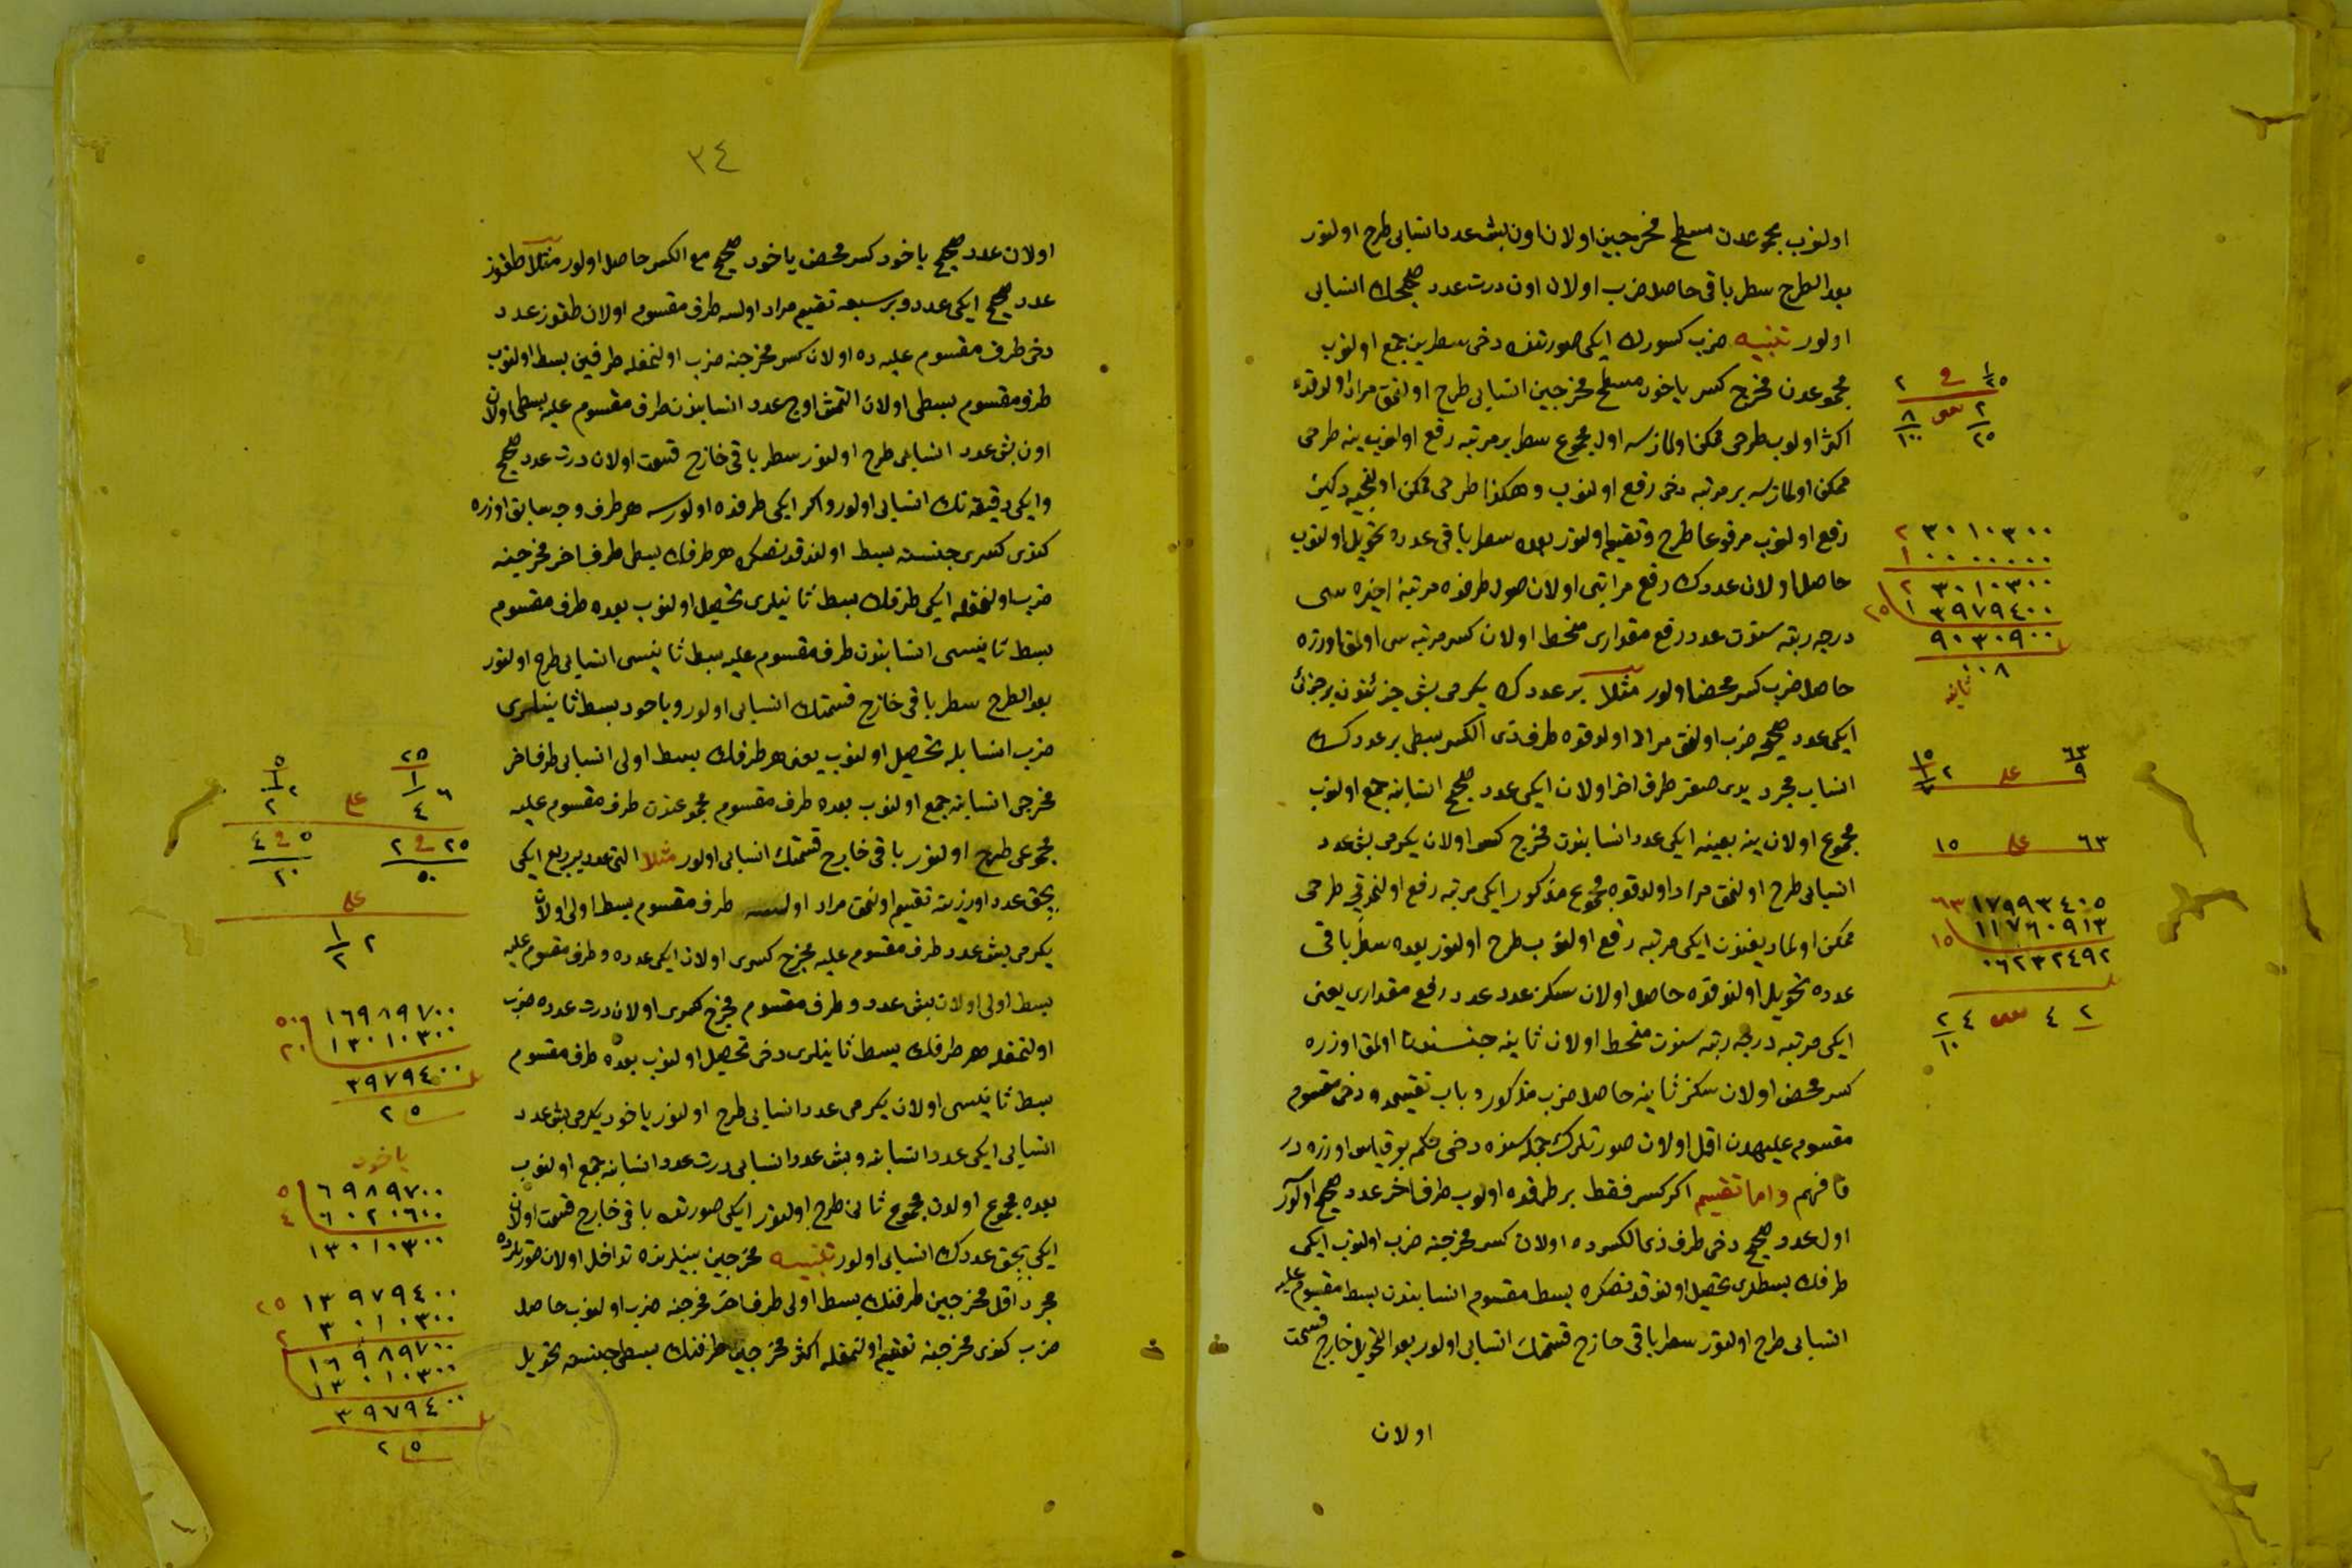 اولنوب مجموعدن مسطح مخرجين اولان اون بش عدد انسابی طرح اولنور
بعد الطرح سطر باقی حاصل ضرب اولان اون درت عدد صحيحك انسابی
اولور تنبيه ضرب كسورك ايكی صورتنده دخی سطرين جمع اولنوب
مجموعدن مخرج كسر ياخود مسطح مخرجين انسابی طرح اولنمق مراد اولندقده
اكثر اولوب طرحی ممكن اولمازسه اول مجموع سطر بر مرتبه رفع اولنوب ينه طرحی
ممكن اولمازسه بر مرتبه دخی رفع اولنوب وهكذا طرحی ممكن اولنجيه دكين
رفع اولنوب مرفوعا طرح وتقسيم اولنور بعده سطر باقی عدده تحويل اولنوب
حاصل اولان عددك رفع مراتبی اولان صول طرفده مرتبۀ اخيره سی
درجه رتبه سندن عدد رفع مقداری منحط اولان كسر مرتبه سی اولمق اوزره
حاصل ضرب كسر محض اولور مثلا بر عددك يكرمی بش جزئندن بر جزئی
ايكی عدد صحيحه ضرب اولنمق مراد اولندقده طرف ذی الكسر بسطی بر عددك
انساب مجرد يدی صفر طرف اخر اولان ايكی عدد صحيح انسابنه جمع اولنوب
مجموع اولان ينه بعينه ايكی عدد انسابندن مخرج كسر اولان يكرمی بش عدد
انسابی طرح اولنمق مراد اولندقده مجموع مذكور ايكی مرتبه رفع اولنمدقجه طرحی
ممكن اولماديغندن ايكی مرتبه رفع اولنوب طرح اولنور بعده سطر باقی
عدده تحويل اولندقده حاصل اولان سكز عدد عدد رفع مقداری يعنی
ايكی مرتبه درجه رتبه سندن منحط اولان ثانيه جنسندن اولمق اوزره
كسر محض اولان سكز ثانيه حاصل ضرب مذكور و باب تقسيمده دخی مقسوم
مقسوم عليهدن اقل اولان صورتلرك جمله سنده دخی حكم بو قياس اوزره در
فافهم واما تقسيم اكر كسر فقط بر طرفده اولوب طرف اخر عدد صحيح اولور
اول عدد صحيح دخی طرف ذی الكسرده اولان كسر مخرجنه ضرب اولنوب ايكی
طرفك بسطلری تحصيل اولندقدنصكره بسط مقسوم انسابندن بسط مقسوم عليه
انسابی طرح اولنور سطر باقی خارج قسمتك انسابی اولور بعد التحويل خارج قسمت
اولان
١/٢٥ في ٢
٢/٢٥ سس ٨/١٠٠
٢ ٣٠١٠٣٠٠
١ ٠٠٠٠٠٠٠
٢ ٣٠١٠٣٠٠
٢٥ ١ ٣٩٧٩٤٠٠
٩٠٣٠٩٠٠
٠٠٨
ثانيه
٦٣/٩ على ٢ ١/٧ ١٥
٦٣ على ١٥
٦٣ ١٧٩٩٣٤٠٥
١٥ ١١٧٦٠٩١٣
٠٦٢٣٢٤٩٢
٤ ٢ سس ٤ ٢/١٠
٣٤
اولان عدد صحيح ياخود كسر محض ياخود صحيح مع الكسر حاصل اولور مثلا طقوز
عدد صحيح ايكی عدد و بر سبعه تقسيم مراد اولسه طرف مقسوم اولان طقوز عدد
دخی طرف مقسوم عليه ده اولان كسر مخرجنه ضرب اولنمغله طرفين بسط اولنوب
طرف مقسوم بسطی اولان التمش اوچ عدد انسابندن طرف مقسوم عليه بسطی اولان
اون بش عدد انسابی طرح اولنور سطر باقی خارج قسمت اولان درت عدد صحيح
وايكی دقيقه نك انسابی اولور واكر ايكی طرفده اولورسه هر طرف وجه سابق اوزره
كندی كسری جنسنه بسط اولندقدنصكره هر طرفك بسطی طرف اخر مخرجنه
ضرب اولنمغله ايكی طرفك بسط ثانيلری تحصيل اولنوب بعده طرف مقسوم
بسط ثانيسی انسابندن طرف مقسوم عليه بسط ثانيسی انسابی طرح اولنور
بعد الطرح سطر باقی خارج قسمتك انسابی اولور وياخود بسط ثانيلری
ضرب انسابله تحصيل اولنوب يعنی هر طرفك بسط اولی انسابی طرف اخر
مخرجی انسابنه جمع اولنوب بعده طرف مقسوم مجموعندن طرف مقسوم عليه
مجموعی طرح اولنور باقی خارج قسمتك انسابی اولور مثلا التی عدد بر ربع ايكی
بچق عدد اوزرينه تقسيم اولنمق مراد اولنسه طرف مقسوم بسط اولی اولان
يكرمی بش عدد طرف مقسوم عليه مخرج كسری اولان ايكی عدده و طرف مقسوم عليه
بسط اولی اولان بش عدد و طرف مقسوم مخرج كسری اولان درت عدده ضرب
اولنمغله هر طرفك بسط ثانيلری دخی تحصيل اولنوب بعده طرف مقسوم
بسط ثانيسی اولان يكرمی عدد انسابی طرح اولنور ياخود يكرمی بش عدد
انسابی ايكی عدد انسابنه و بش عدد انسابی درت عدد انسابنه جمع اولنوب
بعده مجموع اولدن مجموع ثانی طرح اولنور ايكی صورتده باقی خارج قسمت اولان
ايكی بچق عددك انسابی اولور تنبيه مخرجين بينلرنده تداخل اولان صورتلرده
مجرد اقل مخرجين طرفنك بسط اولی طرف اخر مخرجنه ضرب اولنوب حاصل
ضرب كندی مخرجنه تقسيم اولنمغله اكثر مخرجين طرفنك بسطی جنسنه تحويل
٢٥ ٦ ١/٤ على ٥ ٢ ١/٢
٢٥ في ٢ ٥ في ٤
٥٠ ٢٠
على
٢ ١/٢
٥٠ ١٦٩٨٩٧٠٠
٢٠ ١٣٠١٠٣٠٠
٣٩٧٩٤٠٠
٢ ٥
ياخود
٥ ٦٩٨٩٧٠٠
٤ ٦٠٢٠٦٠٠
١٣٠١٠٣٠٠
٢٥ ١٣٩٧٩٤٠٠
٢ ٣٠١٠٣٠٠
١٦٩٨٩٧٠٠
١٣٠١٠٣٠٠
٣٩٧٩٤٠٠
٢ ٥